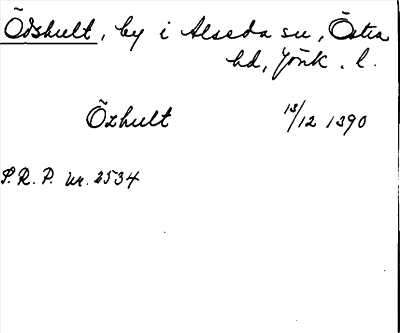 Ödshult, by i Alseda sn, Östra
hd, Jönk. l.
Özhult 13/12 1390
P.R.P. nr. 2534